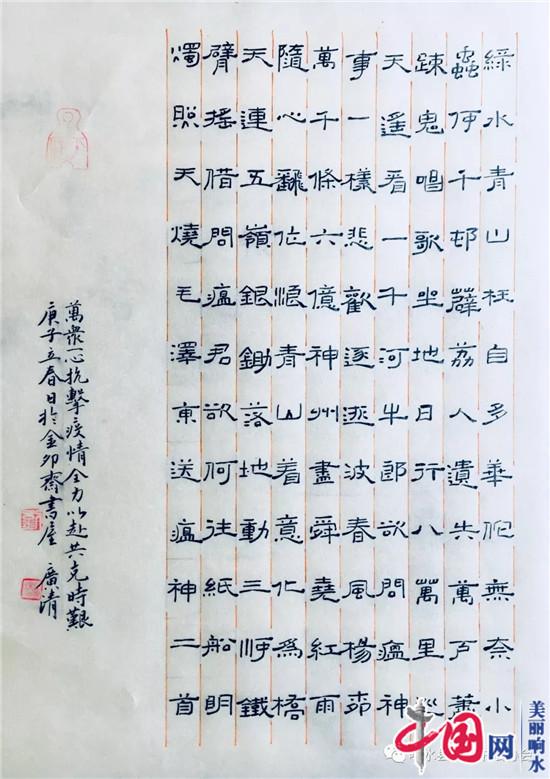 綠水青山枉自多華佗無奈小
蟲何千邨薜荔人遺失萬戶蕭
疎鬼唱歌坐地日行八萬里巡
天遙看一千河牛郎欲問瘟神
事一樣悲歡逐逝波春風楊柳
萬千條六億神州盡舜堯紅雨
隨心翻作浪青山着意化為橋
天連五嶺銀鋤落地動三河鐵
臂搖借問瘟君欲何往紙船明
燭照天燒毛澤東送瘟神二首
萬衆心抗擊疫情全力以赴共克時艱
庚子立春日於金卯齋書屋 廣清
中国网
美丽响水